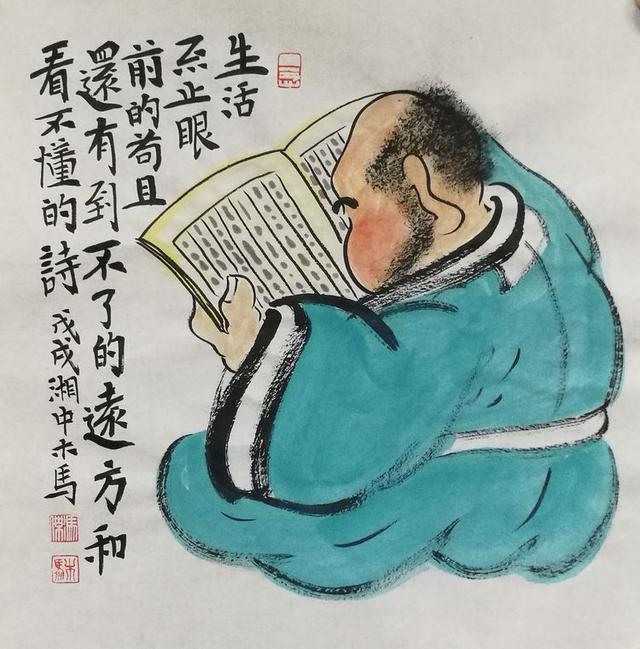 生活
不止眼
前的苟且
還有到不了的遠方和
看不懂的詩
戊戌湘中木馬